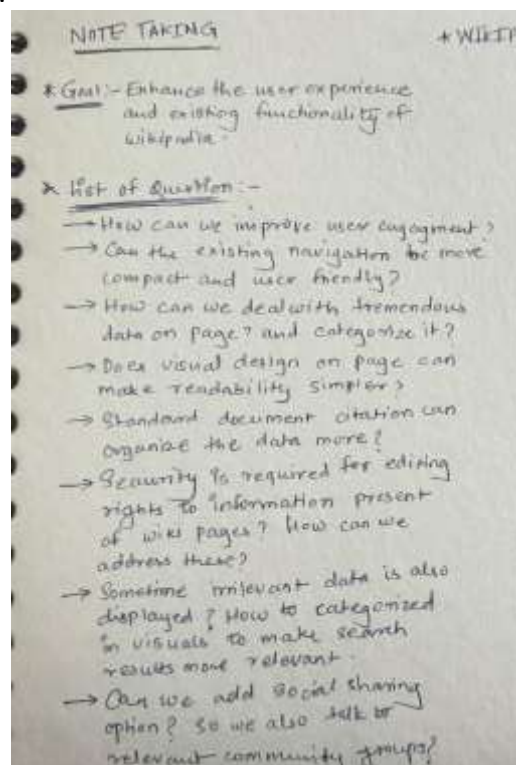 NOTE TAKING
* WIKIP
* Goal:- Enhance the user experience
and existing functionality of
wikipedia.
* List of Question:-
→ How can we improve user engagment?
→ Can the existing navigation be more
compact and user friendly?
→ How can we deal with tremendous
data on page? and categorize it?
→ Does visual design on page can
make readability simpler?
→ Standard document citation can
organize the data more?
→ Security is required for editing
rights to information present
of wiki pages? How can we
address these?
→ Sometime irrilevant data is also
displayed? How to categorized
in visuals to make search
results more relevant.
→ Can we add social sharing
option? so we also talk to
relevant community groups?